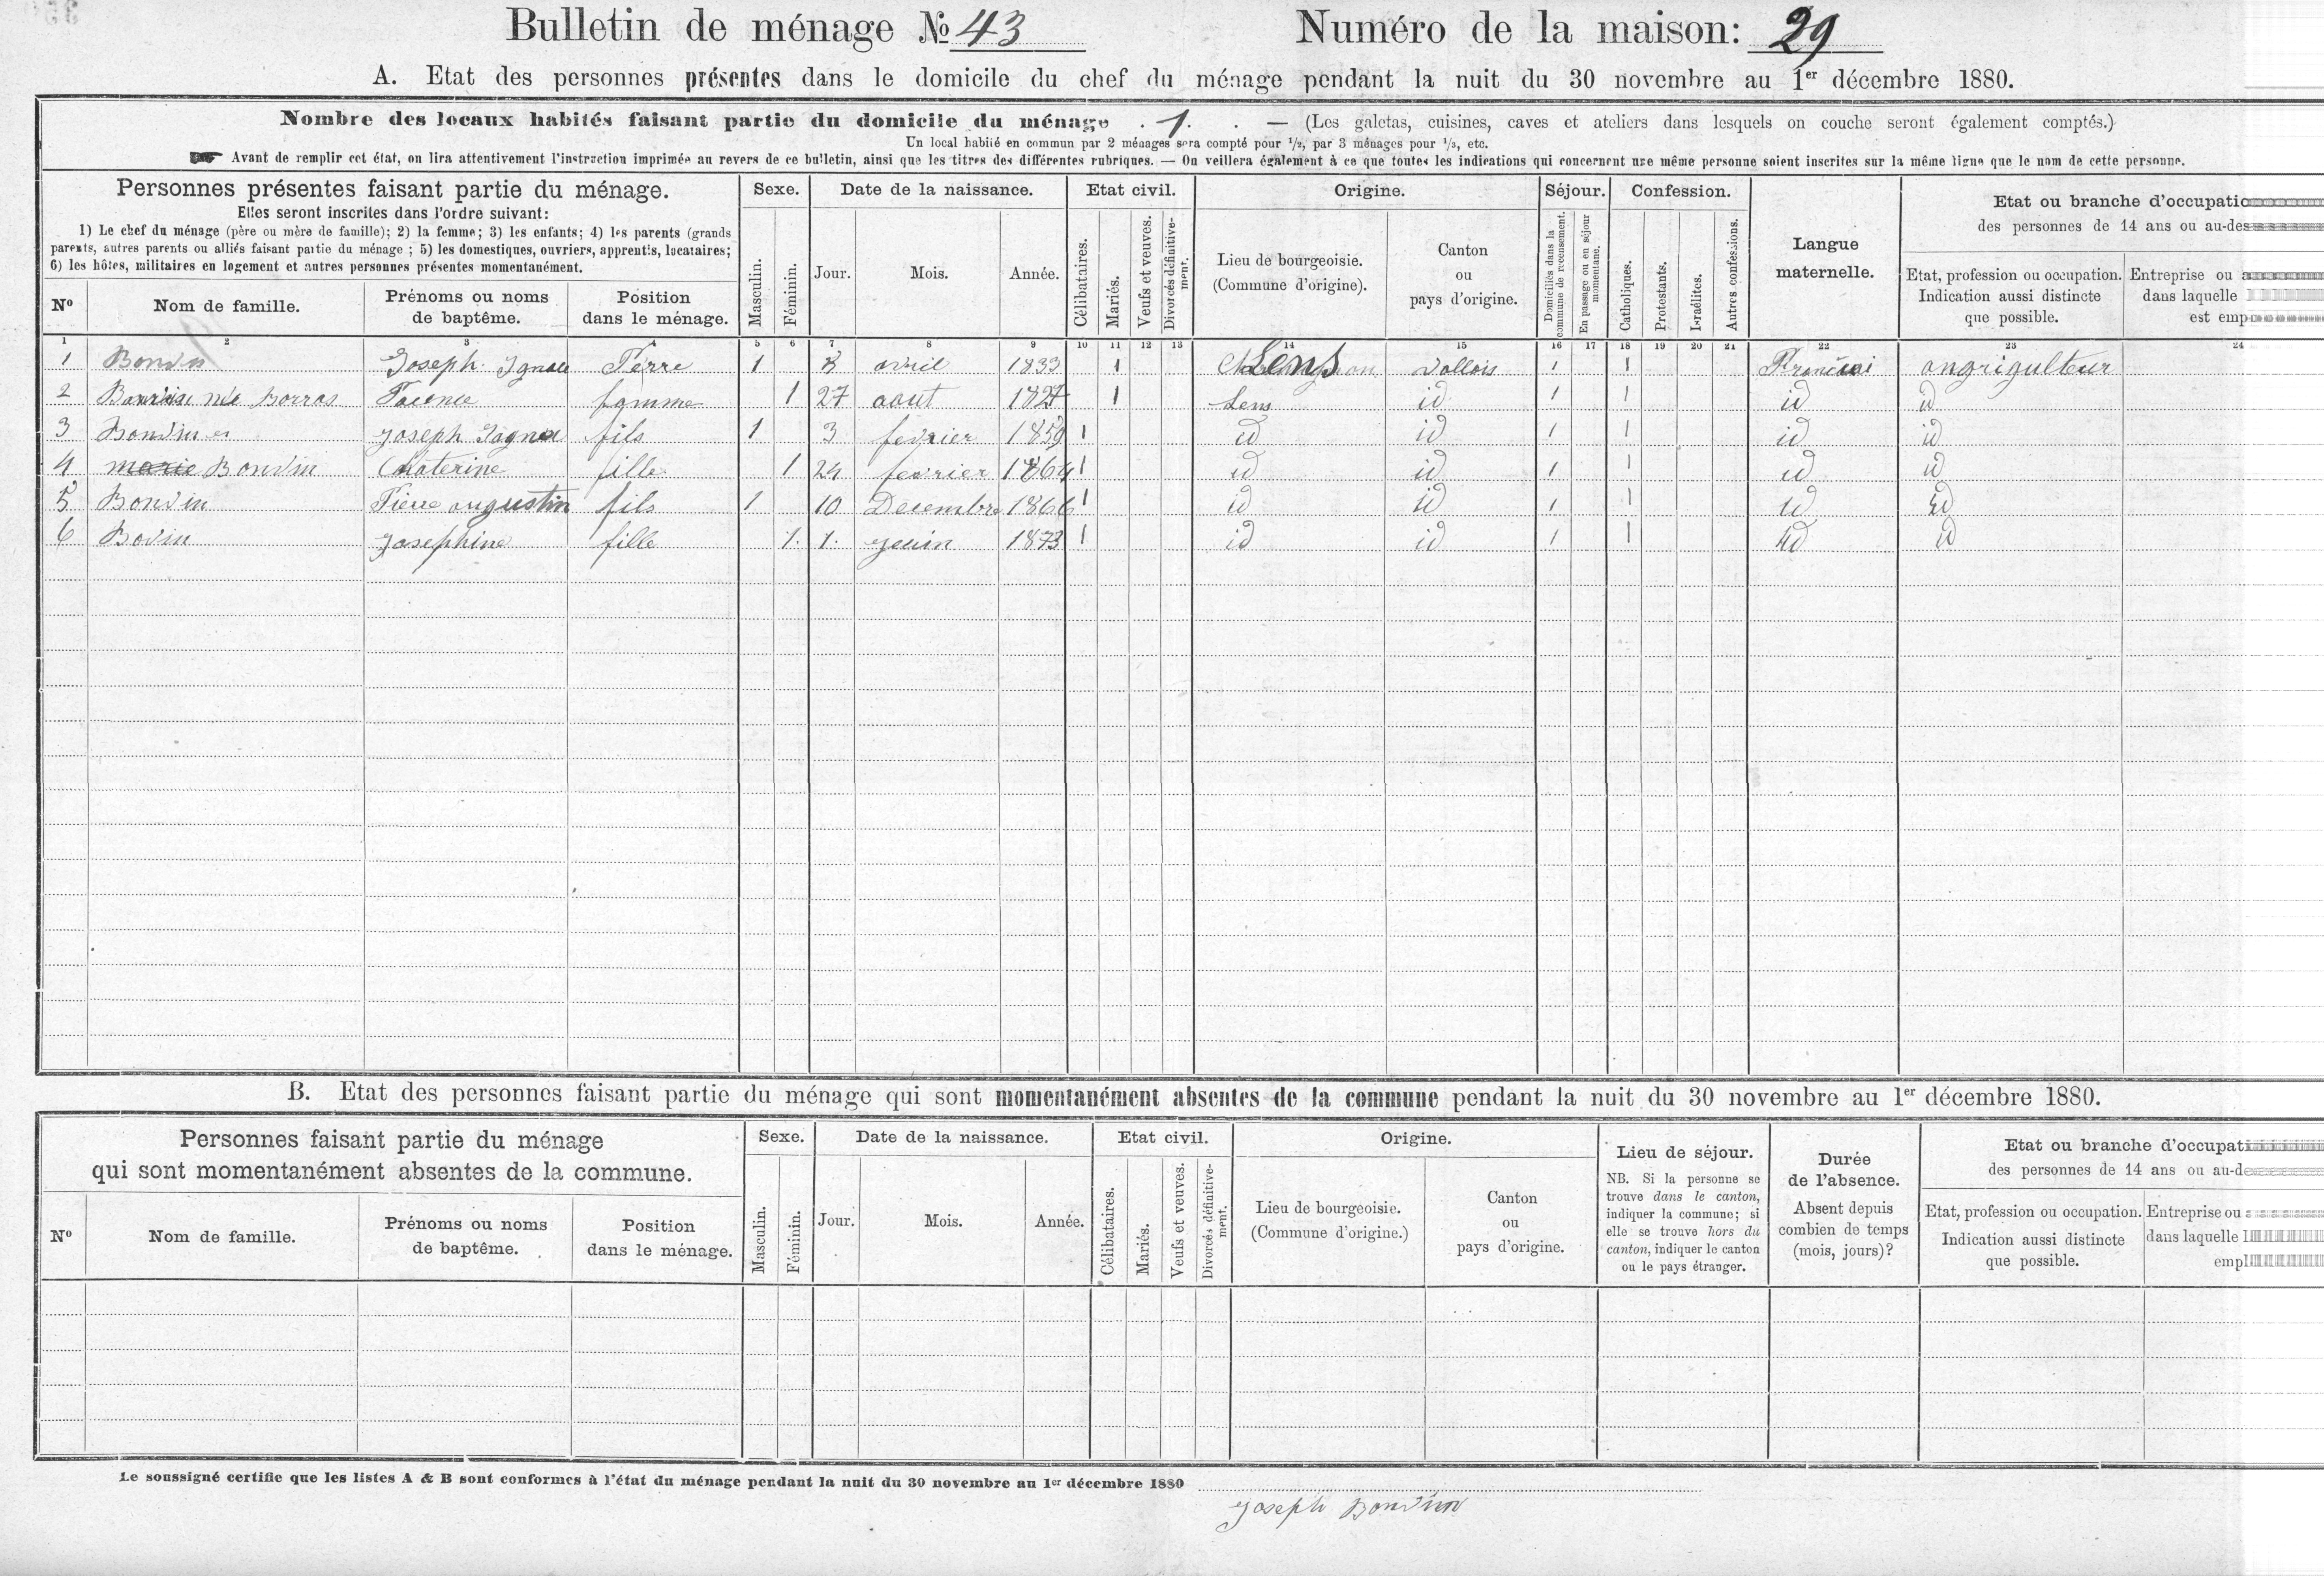 Bulletin de ménage № 43 Numéro de la maison: 29
A. Etat des personnes présentes dans le domicile du chef du ménage pendant la nuit du 30 novembre au 1er décembre 1880.
Nombre des locaux habités faisant partie du domicile du ménage . 1. . — (Les galetas, cuisines, caves et ateliers dans lesquels on couche seront également comptés.)
Un local habité en commun par 2 ménages sera compté pour 1/2, par 3 ménages pour 1/3, etc.
Avant de remplir cet état, on lira attentivement l'instruction imprimée au revers de ce bulletin, ainsi que les titres des différentes rubriques. — On veillera également à ce que toutes les indications qui concernent une même personne soient inscrites sur la même ligne que le nom de cette personne.
Personnes présentes faisant partie du ménage.
Elles seront inscrites dans l'ordre suivant:
1) Le chef du ménage (père ou mère de famille); 2) la femme; 3) les enfants; 4) les parents (grands
parents, autres parents ou alliés faisant partie du ménage ; 5) les domestiques, ouvriers, apprentis, locataires;
6) les hôtes, militaires en logement et autres personnes présentes momentanément.
Nº Nom de famille. Prénoms ou noms de baptême. Position dans le ménage.
Sexe. Masculin. Féminin.
Date de la naissance. Jour. Mois. Année.
Etat civil. Célibataires. Mariés. Veufs et veuves. Divorcés définitive-ment.
Origine. Lieu de bourgeoisie. (Commune d'origine). Canton ou pays d'origine.
Séjour. Domiciliés dans la commune de recensement. En passage ou en séjour momentané.
Confession. Catholiques. Protestants. Israélites. Autres confessions.
Langue maternelle.
Etat ou branche d'occupatio
des personnes de 14 ans ou au-des
Etat, profession ou occupation. Indication aussi distincte que possible.
Entreprise ou dans laquelle est emp
1 2 3 4 5 6 7 8 9 10 11 12 13 14 15 16 17 18 19 20 21 22 23 24
1 Bonvin Joseph Ignace Perre 1 avril 1833 1 Lens Vallois 1 1 Francai angrigulteur
2 Borras famme 1 27 aout 1827 1 Lens id 1 1 id id
3 Bonvin joseph fils 1 3 fevrier 1859 1 id id 1 1 id id
4 marie Bonvin Chaterine fille 1 24 fevrier 1864 1 id id 1 1 id id
5 Bonvin Pierre augustin fils 1 10 Decembre 1866 1 id id 1 1 id id
6 Bovin josephine fille 1. 1. jeuin 1873 1 id id 1 1 id id
B. Etat des personnes faisant partie du ménage qui sont momentanément absentes de la commune pendant la nuit du 30 novembre au 1er décembre 1880.
Personnes faisant partie du ménage
qui sont momentanément absentes de la commune.
Nº Nom de famille. Prénoms ou noms de baptême. Position dans le ménage.
Sexe. Masculin. Féminin.
Date de la naissance. Jour. Mois. Année.
Etat civil. Célibataires. Mariés. Veufs et veuves. Divorcés définitive-ment.
Origine. Lieu de bourgeoisie. (Commune d'origine.) Canton ou pays d'origine.
Lieu de séjour.
NB. Si la personne se
trouve dans le canton,
indiquer la commune; si
elle se trouve hors du
canton, indiquer le canton
ou le pays étranger.
Durée
de l'absence.
Absent depuis
combien de temps
(mois, jours)?
Etat ou branche d'occupati
des personnes de 14 ans ou au-d
Etat, profession ou occupation. Indication aussi distincte que possible.
Entreprise ou dans laquelle empl
Le soussigné certifie que les listes A & B sont conformes à l'état du ménage pendant la nuit du 30 novembre au 1er décembre 1880
joseph Bonvin